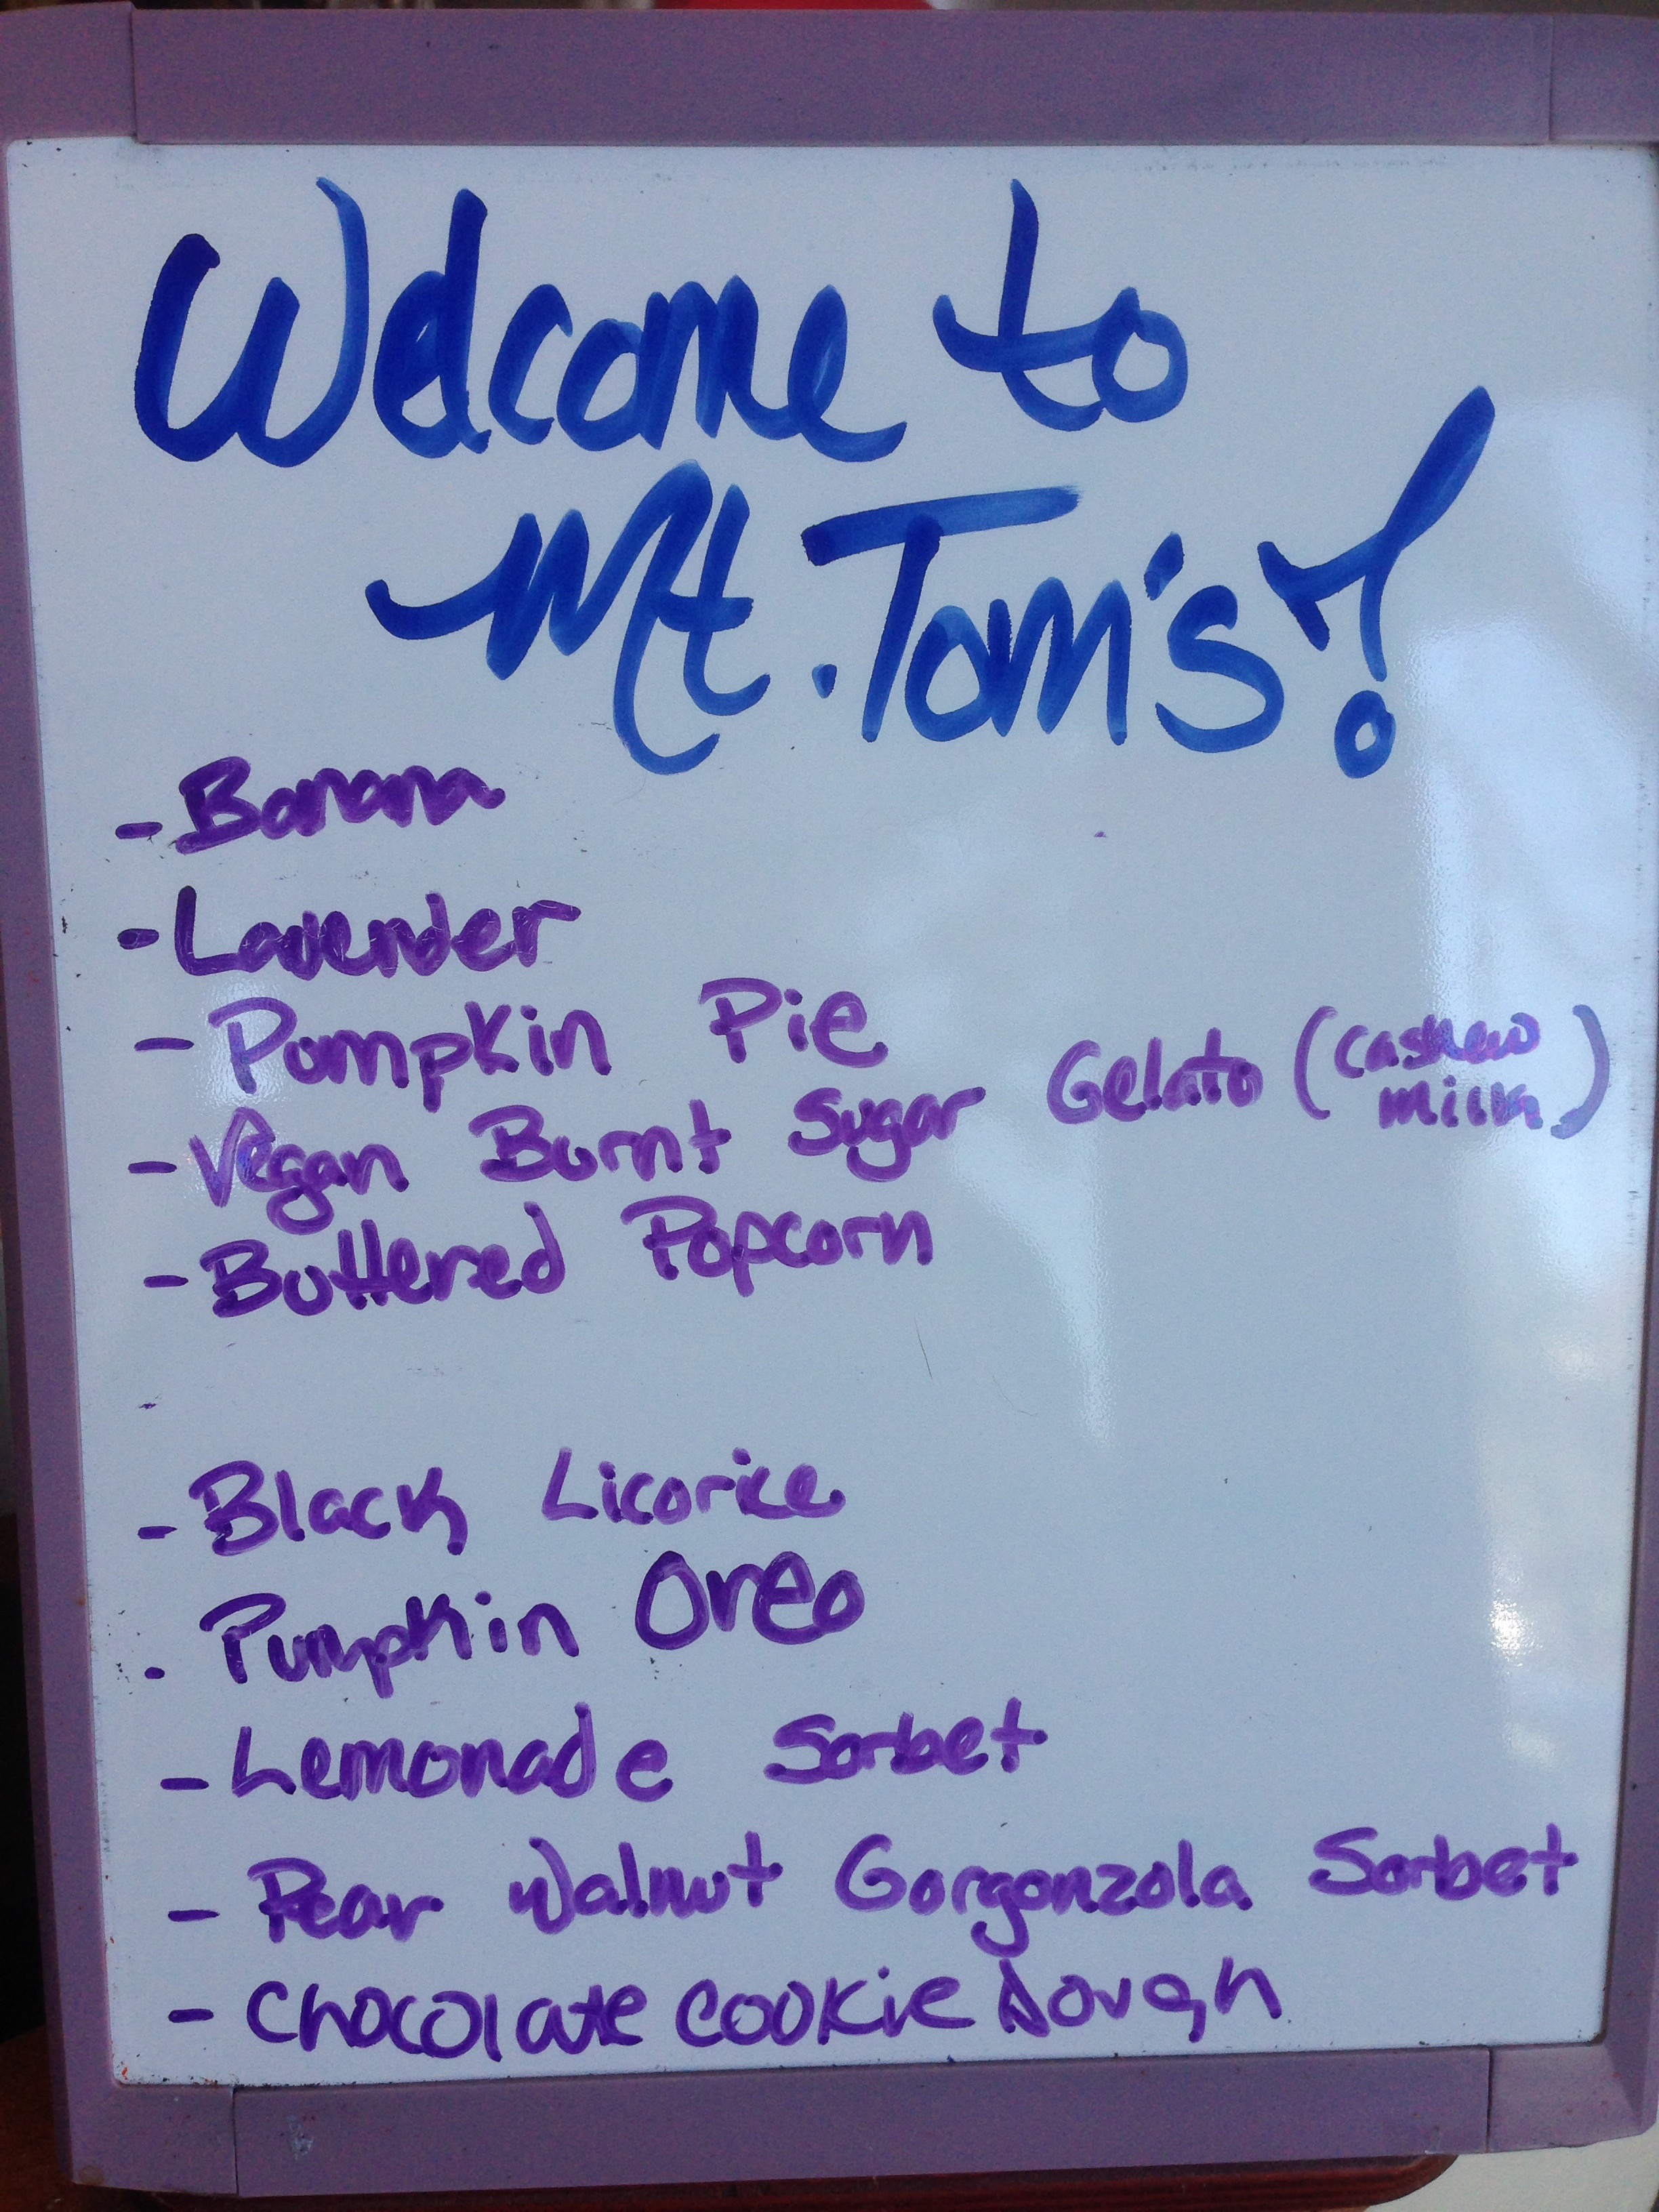 Welcome to
Mt. Tom's!
- Banana
- Lavender
- Pumpkin Pie
- Vegan Burnt Sugar Gelato (cashew milk)
- Buttered Popcorn
- Black Licorice
- Pumpkin Oreo
- Lemonade Sorbet
- Pear Walnut Gorgonzola Sorbet
- Chocolate Cookie Dough